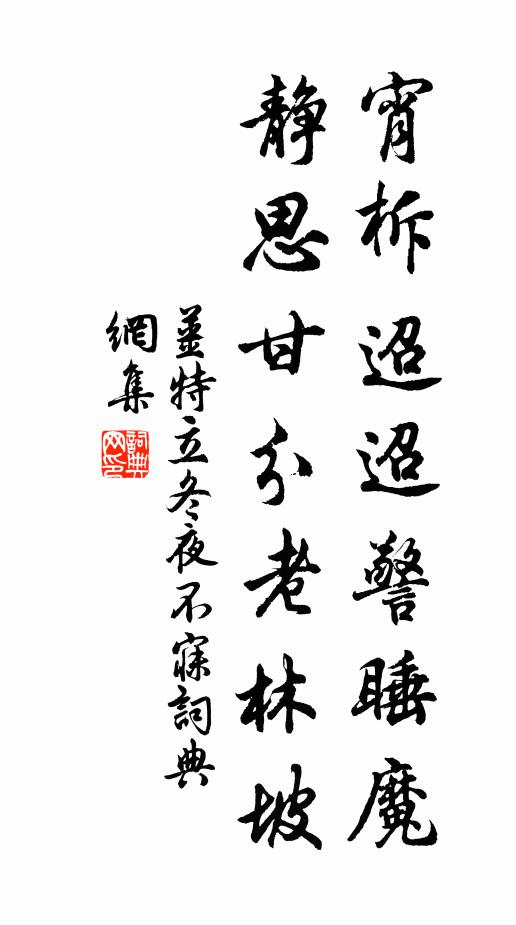 宵柝迢迢警睡魔
静思甘分老林坡
姜特立冬夜不寐詞典
網集
詞典
网印